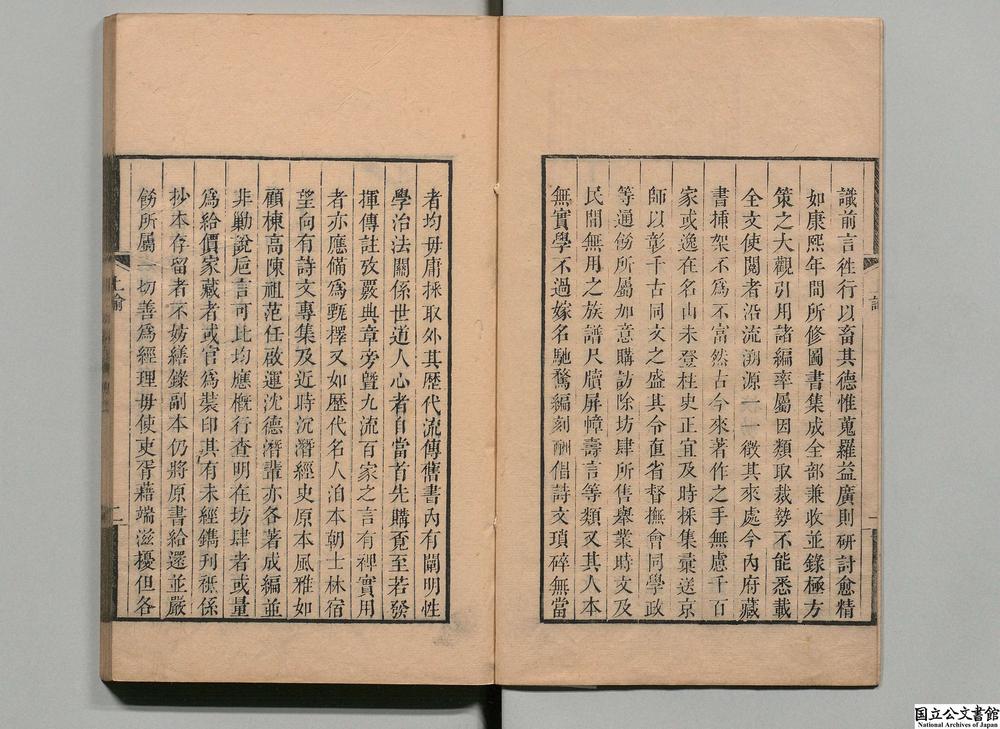 識前言徃行以畜其德惟蒐羅益廣則硏討愈精
如康熙年間所修圖書集成全部兼收並錄極方
策之大觀引用諸編率屬因類取裁勢不能悉載
全文使閱者沿流溯源一一徵其來處今內府藏
書揷架不爲不富然古今來著作之手無慮千百
家或逸在名山未登柱史正宜及時採集彙送京
師以彰千古同文之盛其令直省督撫會同學政
等通飭所屬加意購訪除坊肆所售舉業時文及
民間無用之族譜尺牘屏幛壽言等類又其人本
無實學不過嫁名馳騖編刻酬倡詩文瑣碎無當
者均毋庸採取外其歷代流傳舊書內有闡明性
學治法關係世道人心者自當首先購覓至若發
揮傳註攷覈典章旁曁九流百家之言有裨實用
者亦應備爲甄擇又如歷代名人洎本朝士林宿
望向有詩文專集及近時沉潛經史原本風雅如
顧棟高陳祖范任啟運沈德潛輩亦各著成編並
非勦說巵言可比均應槪行查明在坊肆者或量
爲給價家藏者或官爲裝印其有未經鐫刊秪係
抄本存留者不妨繕錄副本仍將原書給還並嚴
飭所屬一切善爲經理毋使吏胥藉端滋擾但各
上諭
二
国立公文書館
National Archives of Japan